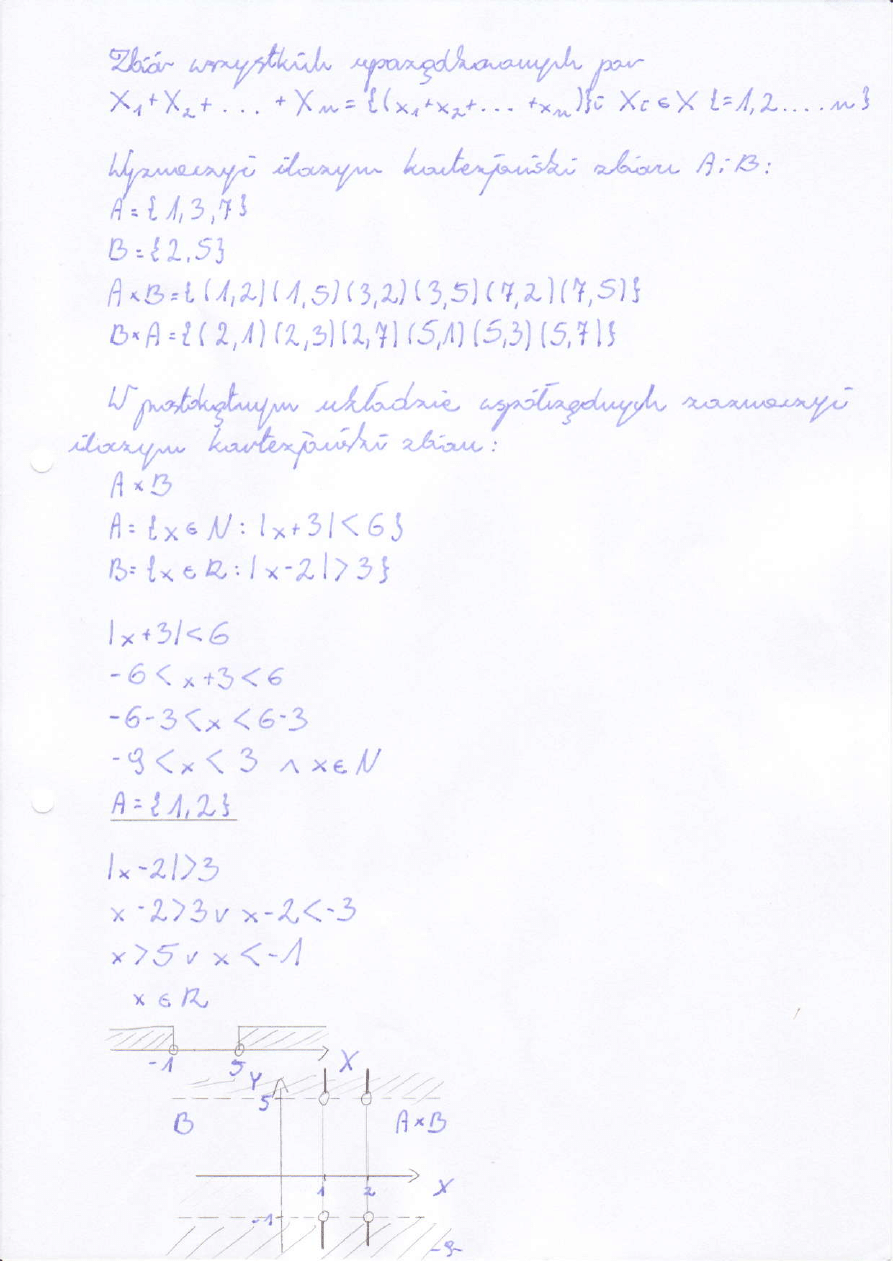 Zbiór wszystkich uporządkowanych par
X₁+X₂+...+Xₙ={(x₁+x₂+...+xₙ)}i Xi∈X {=1,2....n}
Wyznaczyć iloczym kartezjański zbioru A i B:
A={1,3,7}
B={2,5}
A×B={(1,2)(1,5)(3,2)(3,5)(7,2)(7,5)}
B×A={(2,1)(2,3)(2,7)(5,1)(5,3)(5,7)}
W prostokątnym układzie współrzędnych zaznaczyć
iloczym kartezjański zbioru:
A×B
A={x∈N:|x+3|<6}
B={x∈R:|x-2|>3}
|x+3|<6
-6<x+3<6
-6-3<x<6-3
-9<x<3 ∧ x∈N
A={1,2}
|x-2|>3
x-2>3 ∨ x-2<-3
x>5 ∨ x<-1
x∈R
-1 5 X
Y
5
B A×B
1 2 X
-1
-9-